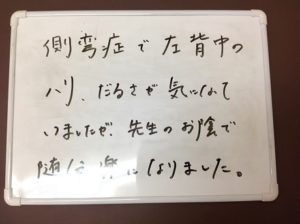 側弯症で左背中の
ハリ、だるさが気になって
いましたが、先生のお陰で
随分楽になりました。